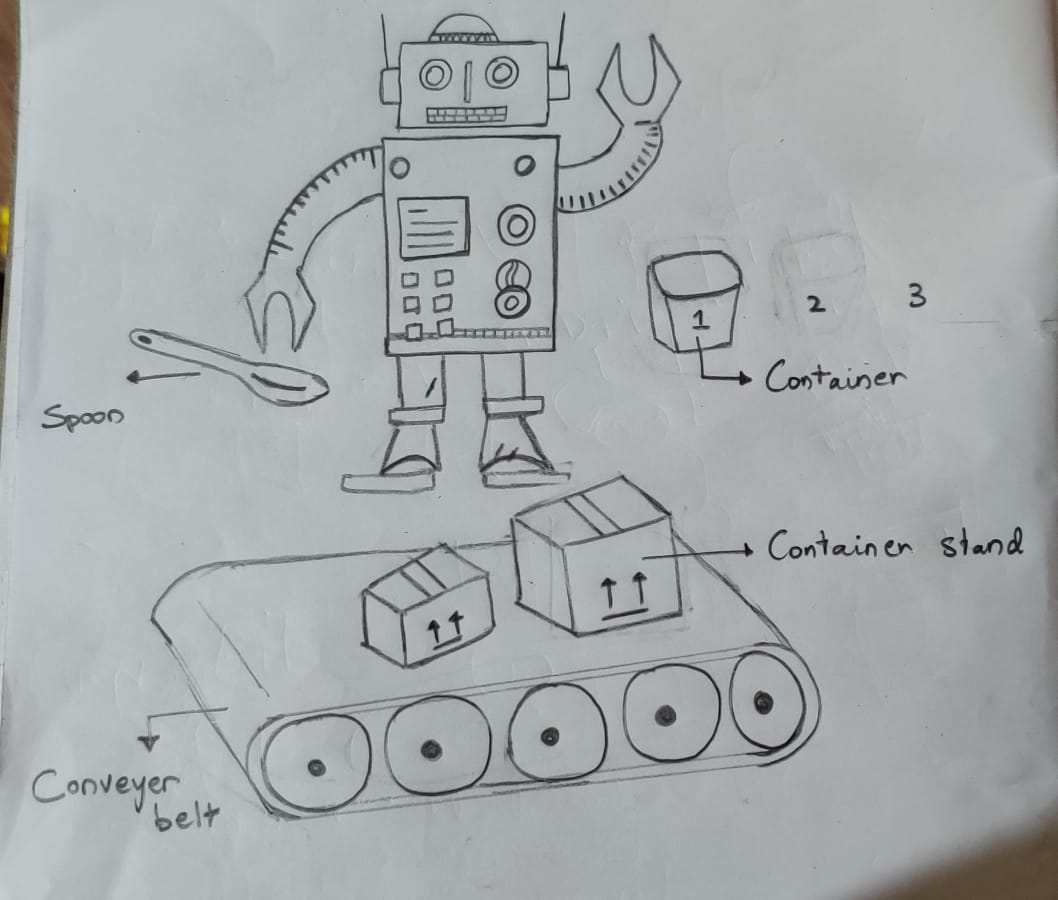 1
2
3
Container
Spoon
Container stand
Conveyer
belt